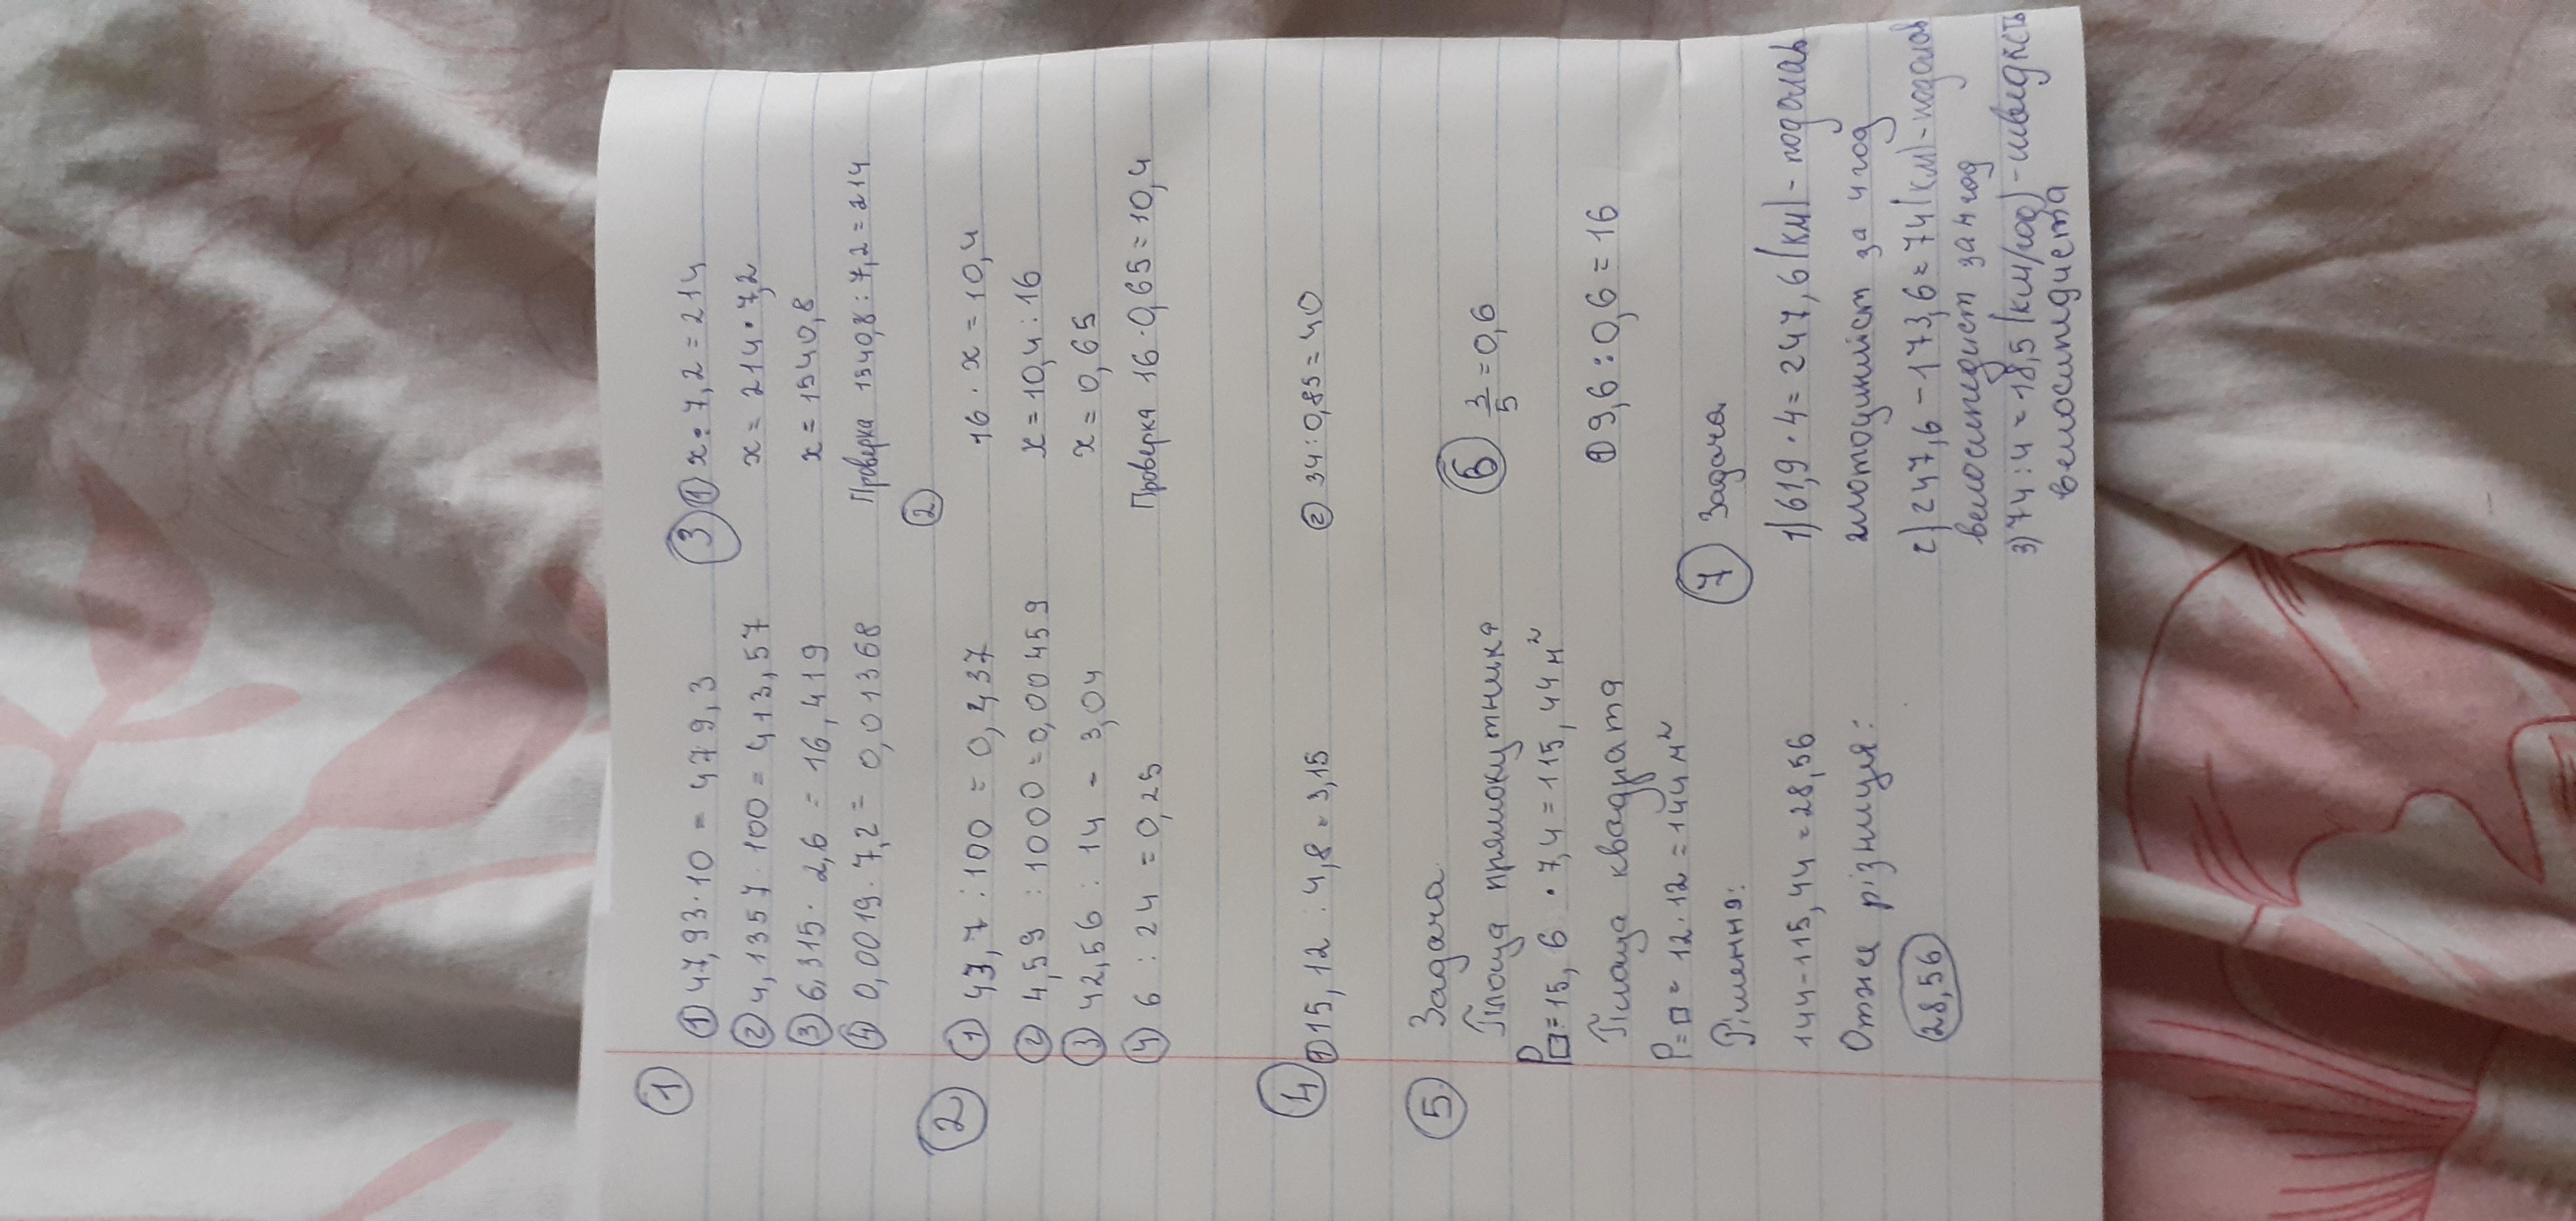 1
① 47,93·10 = 479,3
② 4,1357·100 = 413,57
③ 6,315·2,6 = 16,419
④ 0,0019·7,2 = 0,01368
2
① 43,7:100 = 0,437
② 4,59:1000 = 0,00459
③ 42,56:14 = 3,04
④ 6:24 = 0,25
3
① x:7,2=214
x = 214·7,2
x = 1540,8
Проверка 1540,8:7,2=214
②
16·x=10,4
x=10,4:16
x=0,65
Проверка 16·0,65=10,4
4
① 15,12:4,8=3,15
② 34:0,85=40
5
Задача
Площа прямокутника
P□=15,6·7,4=115,44м²
Площа квадрата
P=□=12·12=144м²
Рішення:
144-115,44=28,56
Отже різниця:
28,56
6
3/5=0,6
① 9,6:0,6=16
7
Задача
1) 61,9·4=247,6(км)-подолав
мотоцикліст за 4 год
2) 247,6-173,6=74(км)-подолав
велосипедист за 4 год
3) 74:4=18,5(км/год)-швидкість
велосипедиста